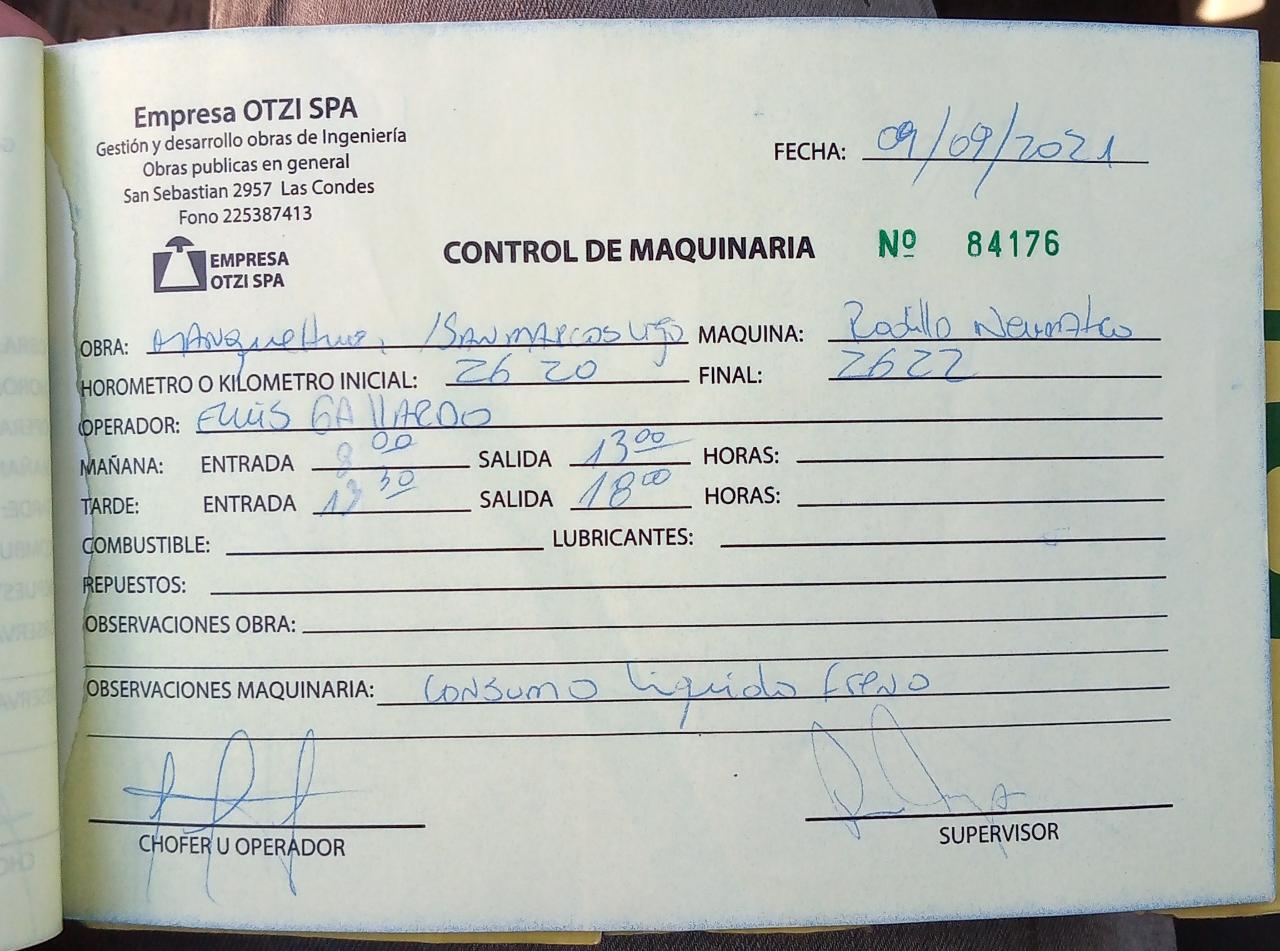 Empresa OTZI SPA
Gestión y desarrollo obras de Ingeniería
Obras publicas en general
San Sebastian 2957 Las Condes
Fono 225387413
EMPRESA
OTZI SPA
FECHA: 09/09/2021
CONTROL DE MAQUINARIA Nº 84176
OBRA: /SAN MARCOS MAQUINA: Rodillo Neumatco
HOROMETRO O KILOMETRO INICIAL: 2620 FINAL: 2622
OPERADOR: GALLARDO
MAÑANA: ENTRADA 8 00 SALIDA 13 00 HORAS:
TARDE: ENTRADA 13 30 SALIDA 18 00 HORAS:
COMBUSTIBLE: LUBRICANTES:
REPUESTOS:
OBSERVACIONES OBRA:
OBSERVACIONES MAQUINARIA: CONSUMO liquido freno
CHOFER U OPERADOR
SUPERVISOR